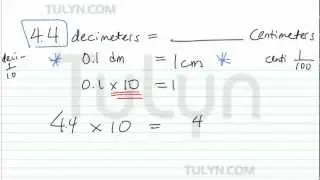 TULYN.COM
4.4 decimeters = ________ centimeters
deci- 1/10 * 0.1 dm = 1 cm * centi 1/100
0.1 × 10 = 1
Tulyn
4.4 × 10 = 4
TULYN.COM
TULYN.COM